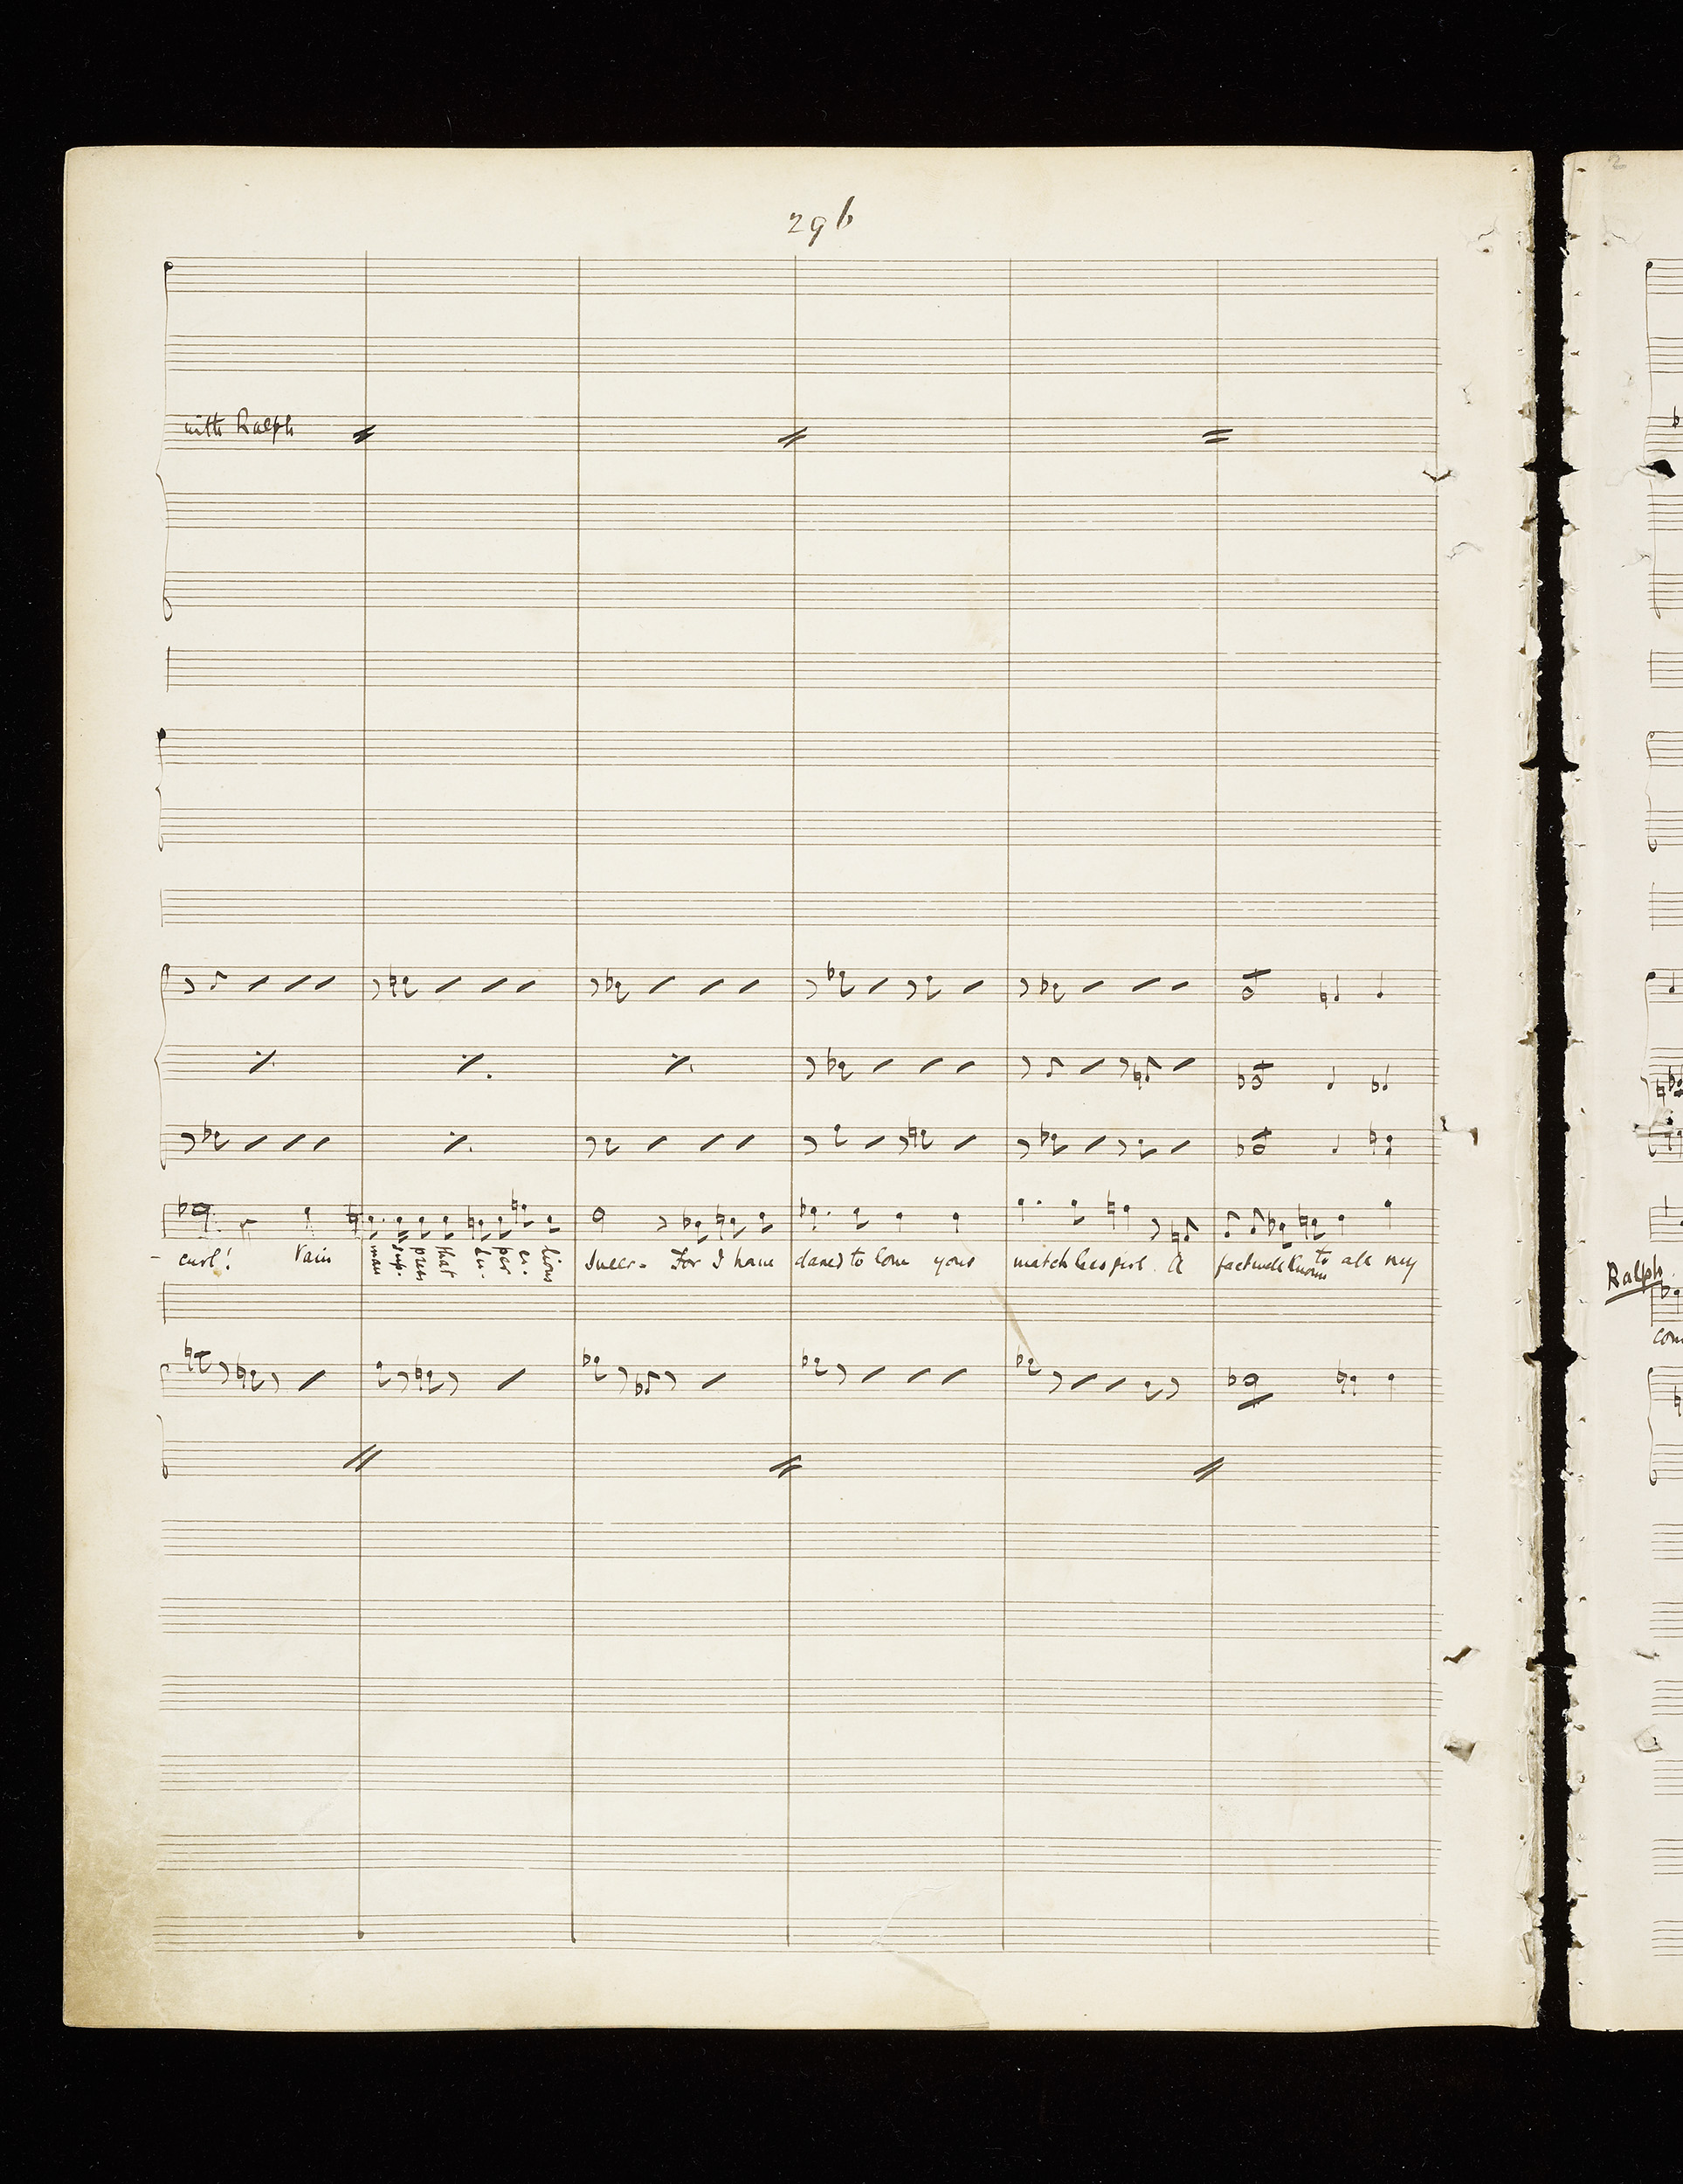 296
2
with Ralph
- curl! Vain man sup- press that su- per- ci- lious sneer - For I have dared to love your matchless girl. A fact well known to all my
Ralph